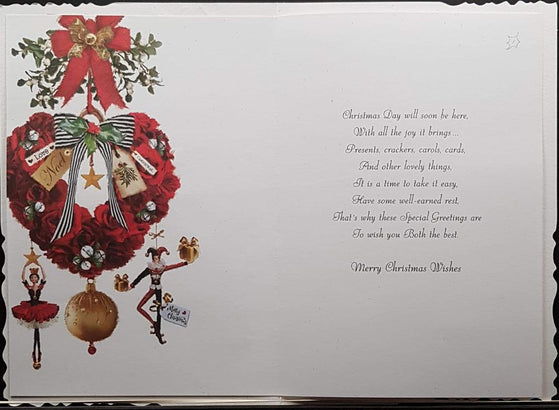 Love
Noel
Merry
Christmas
Christmas Day will soon be here,
With all the joy it brings...
Presents, crackers, carols, cards,
And other lovely things,
It is a time to take it easy,
Have some well-earned rest,
That's why these Special Greetings are
To wish you Both the best.
Merry Christmas Wishes